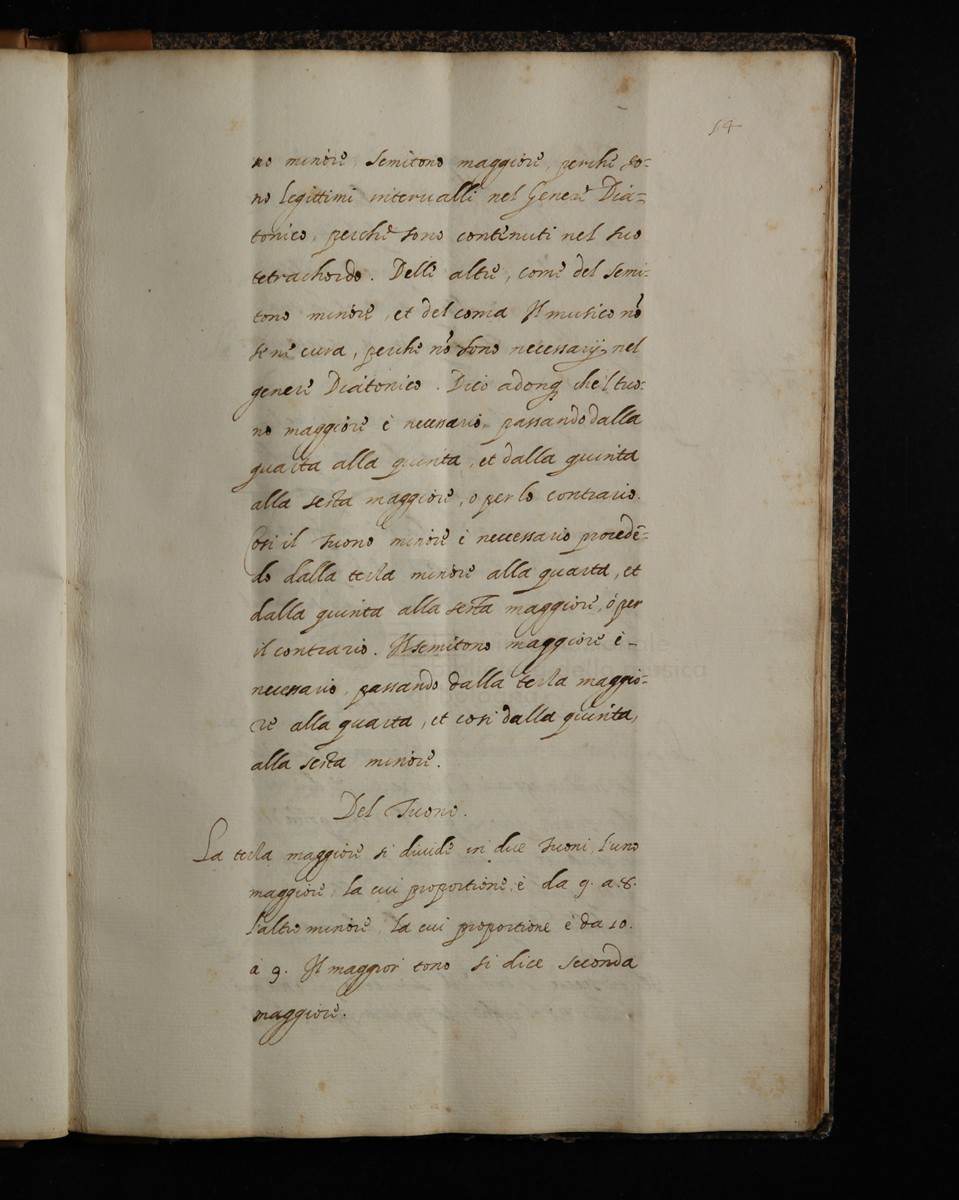 14
no minore, semitono maggiore, perche so-
no legittimi intervalli nel Genere Dia-
tonico, perche sono contenuti nel suo
tetrachordo. Delli altri, come del semi-
tono minore, et del coma Il musico nõ
se ne cura, perche nõ sono necessarij nel
genere Diatonico. Dico adonq che 'l tuo-
no maggiore è necessario, passando dalla
quarta alla quinta, et dalla quinta
alla sesta maggiore, o per lo contrario.
Cosi il tuono minore è necessario procedẽ-
do dalla terza minore alla quarta, et
dalla quinta alla sesta maggiore, ó per
il contrario. Il semitono maggiore è
necessario, passando dalla terza maggio-
re alla quarta, et cosi dalla quinta,
alla sesta minore.
Del Tuono.
La terza maggiore si divide in due tuoni, l'uno
maggiore, la cui proportione, è da 9. a. 8.
l'altro minore, la cui proportione è da 10.
à 9. Il maggior tono si dice seconda
maggiore.